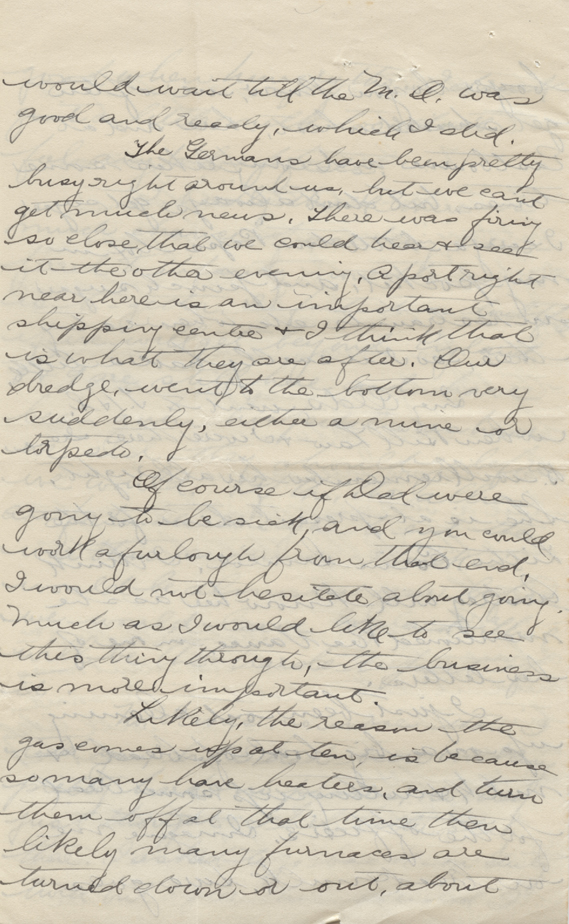 would wait till the M. O. was
good and ready, which I did.
The Germans have been pretty
busy right around us, but we cant
get much news. There was firing
so close that we could hear & see
it the other evening. A port right
near here is an important
shipping centre & I think that
is what they are after. Our
dredge, went to the bottom very
suddenly, either a mine or
torpedo.
Of course if Dad were
going to be sick, and you could
work a furlough from that end,
I would not hesitate about going.
Much as I would like to see
this thing through, the business
is more important.
Likely, the reason the
gas comes up at ten, is because
so many have heaters, and turn
them off at that time then
likely many furnaces are
turned down or out, about